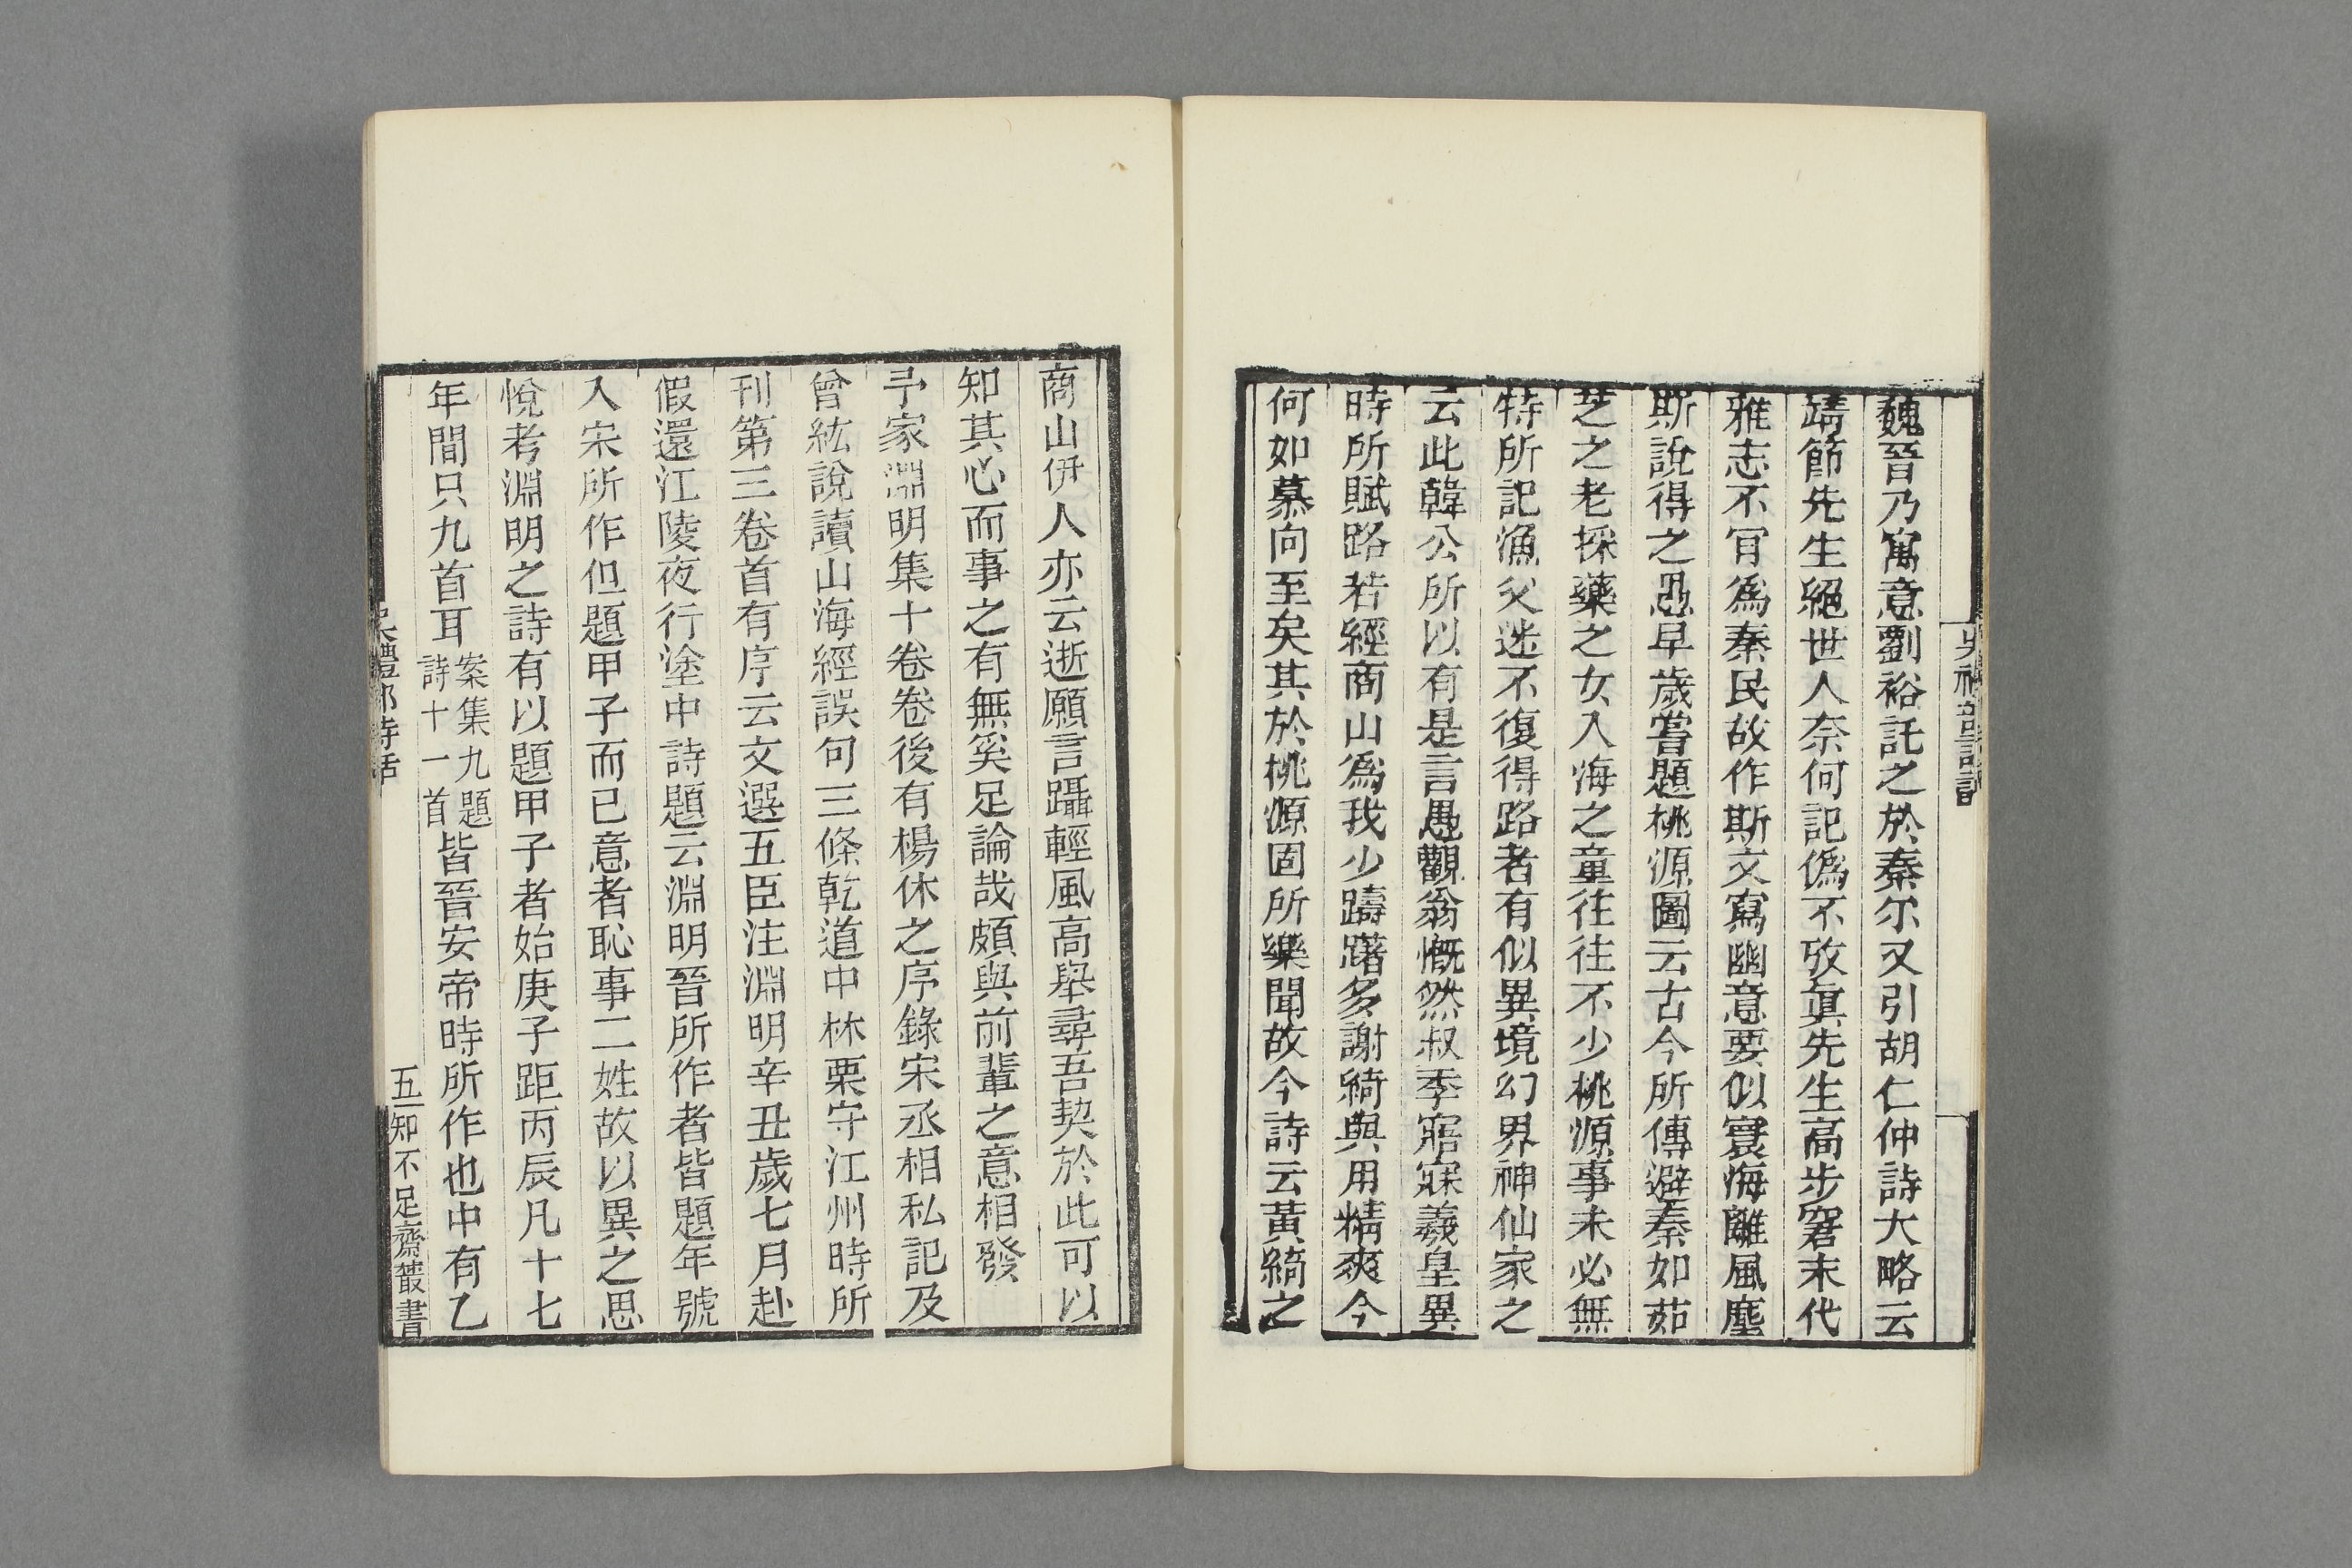 魏晉乃寓意劉裕託之於秦尔又引胡仁仲詩大略云
靖節先生絕世人奈何記僞不攷眞先生高步窘末代
雅志不肎爲秦民故作斯文寫幽意要似寰海離風塵
斯說得之愚早歲嘗題桃源圖云古今所傳避秦如茹
芝之老採藥之女入海之童往往不少桃源事未必無
特所記漁父迷不復得路者有似異境幻界神仙家之
云此韓公所以有是言愚觀翁慨然叔季寤寐羲皇異
時所賦路若經商山爲我少躊躇多謝綺與用精爽今
何如慕向至矣其於桃源固所樂聞故今詩云黃綺之
商山伊人亦云逝願言躡輕風高舉尋吾契於此可以
知其心而事之有無奚足論哉頗與前輩之意相發
予家淵明集十卷卷後有楊休之序錄宋丞相私記及
曾紘說讀山海經誤句三條乾道中林栗守江州時所
刊第三卷首有序云文選五臣注淵明辛丑歲七月赴
假還江陵夜行塗中詩題云淵明晉所作者皆題年號
入宋所作但題甲子而已意者恥事二姓故以異之思
悅考淵明之詩有以題甲子者始庚子距丙辰凡十七
年間只九首耳案集九題詩十一首皆晉安帝時所作也中有乙
吳禮部詩話
五
知不足齋叢書